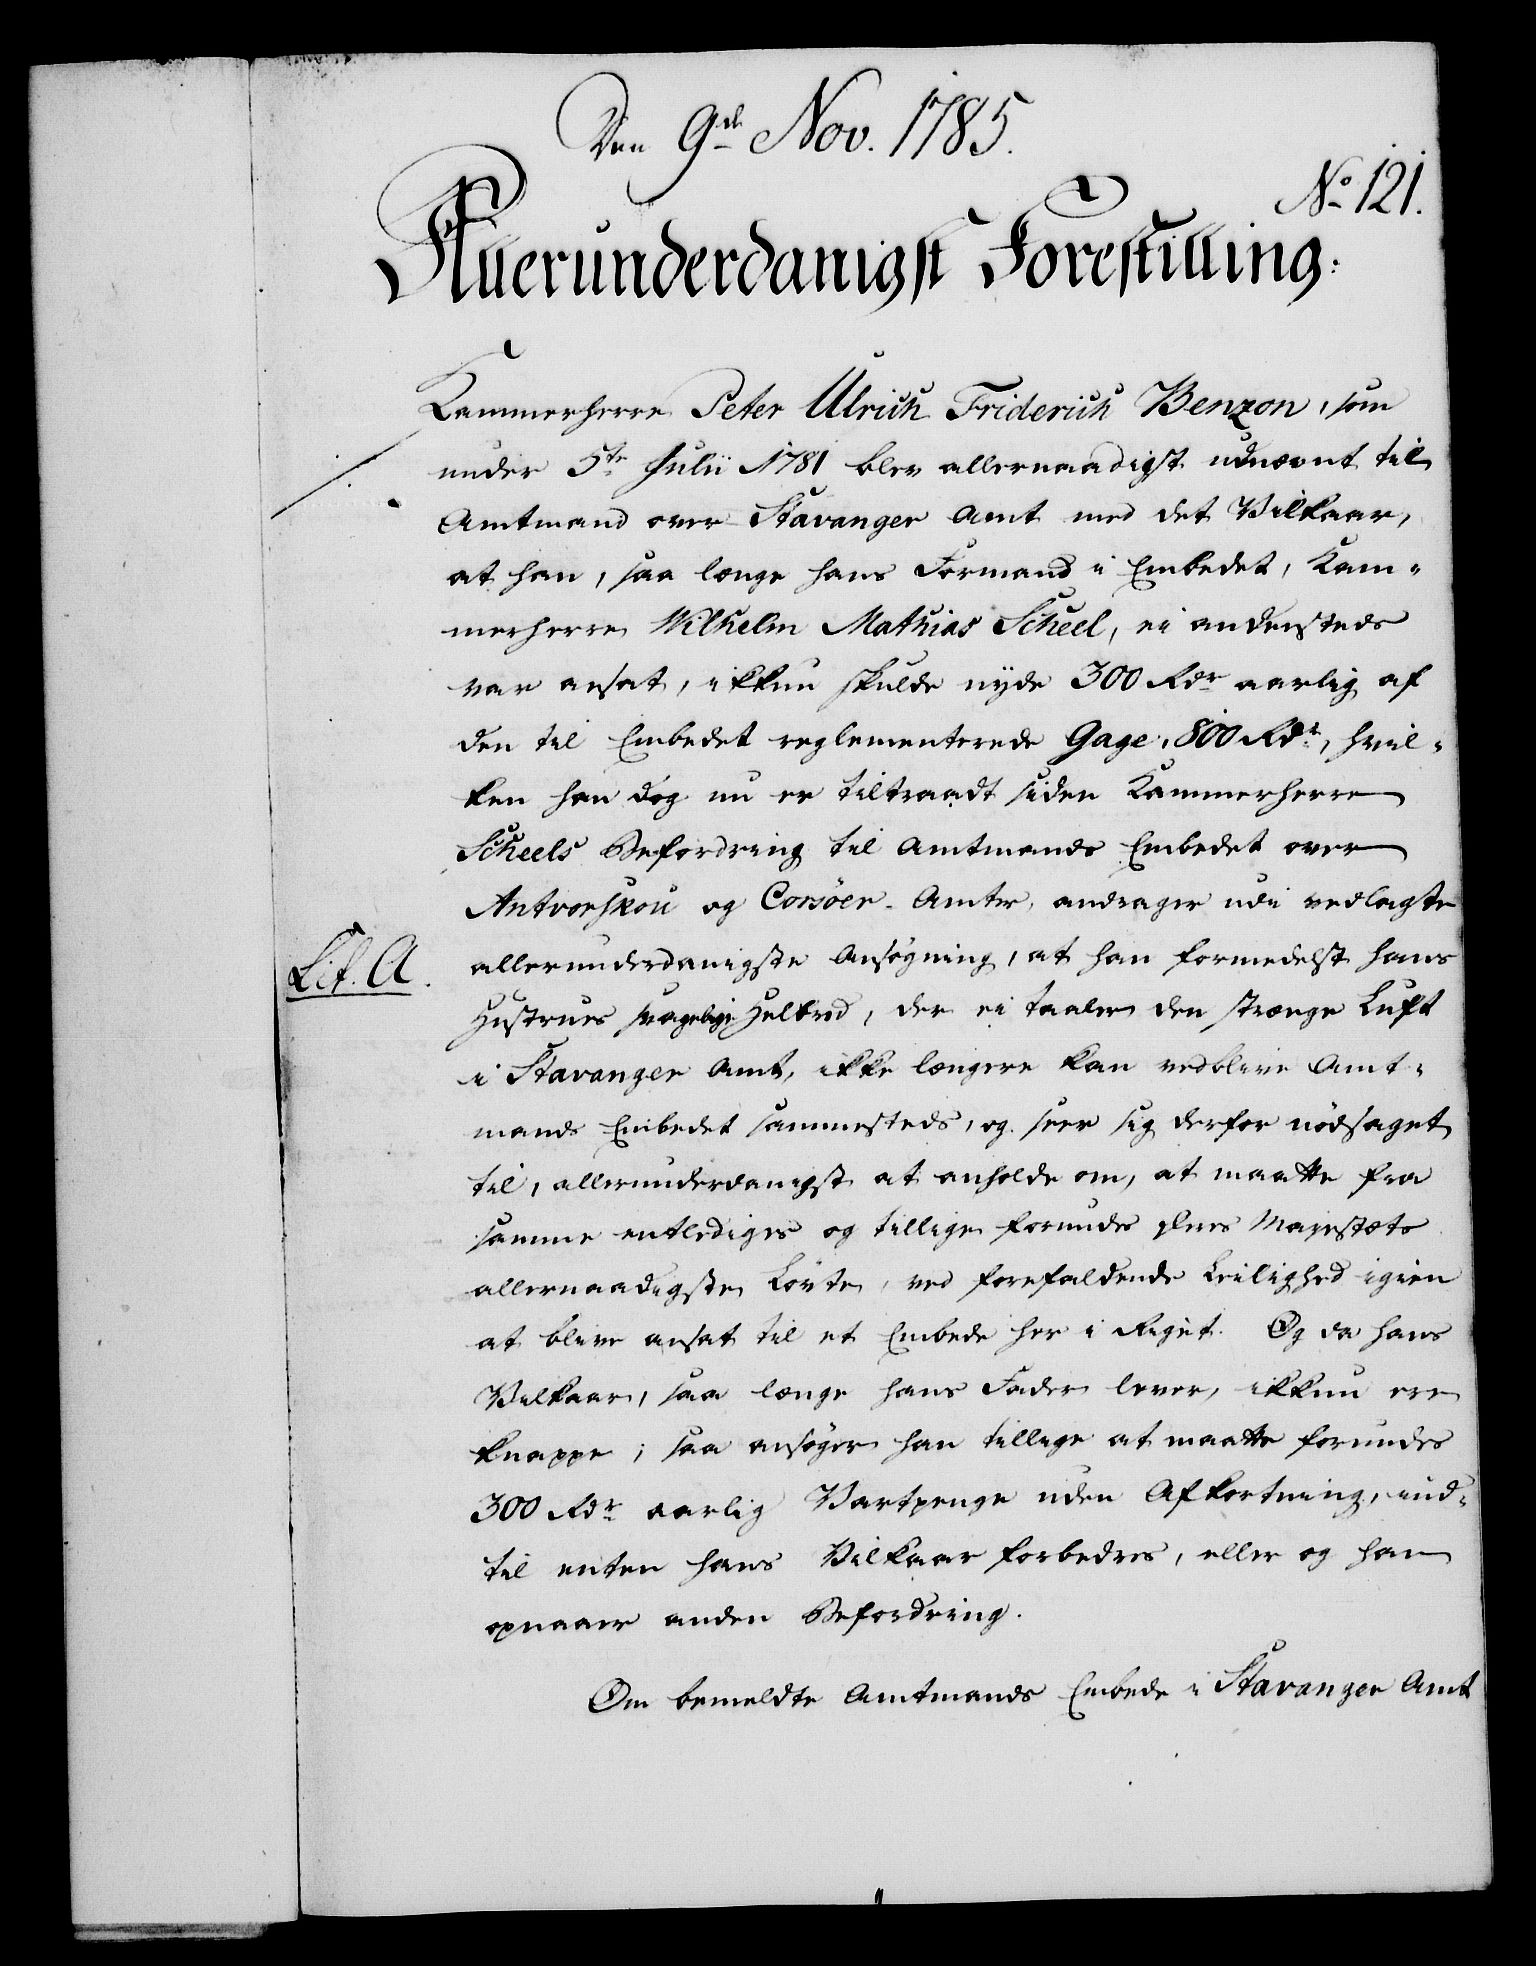 Den 9de Nov. 1785.
No 121.
Allerunderdanigst Forestilling:
Kammerherre Peter Ulrich Friderich Benzon, som
under 5te Julii 1781 blev allernaadigst udnævnt til
Amtmand over Stavanger Amt med det Vilkaar,
at han, saa længe hans Formand i Embedet, Kam-
merherre Wilhelm Mathias Scheel, ei andensteds
var ansat, ikkun skulde nyde 300 Rdr aarlig af
den til Embedet reglementerede Gage, 800 Rdr, hvil-
ken han dog nu er tiltraadt siden Kammerherre
Scheels Befordring til Amtmands Embedet over
Antvorskou og Corsöer Amter, andrager udi vedlagte
Lit. A.
allerunderdanigste Ansøgning, at han formedelst hans
Hustrues svagelige Helbred, der ei taaler den strænge Luft
i Stavanger Amt, ikke længere kan vedblive Amt-
mands Embedet sammesteds, og seer sig derfor nödsaget
til, allerunderdanigst at anholde om, at maatte fra
samme entlediges og tillige forundes Deres Majestæts
allernaadigste Lövte, ved forefaldende Leilighed igien
at blive ansat til et Embede her i Riget. Og da hans
Vilkaar, saa længe hans Fader lever, ikkun ere
knappe; saa ansøger han tillige at maatte forundes
300 Rdr aarlig Vartpenge uden Afkortning, ind-
til enten hans Vilkaar forbedres, eller og han
opnaaer anden Befordring.
Om bemeldte Amtmands Embede i Stavanger Amt